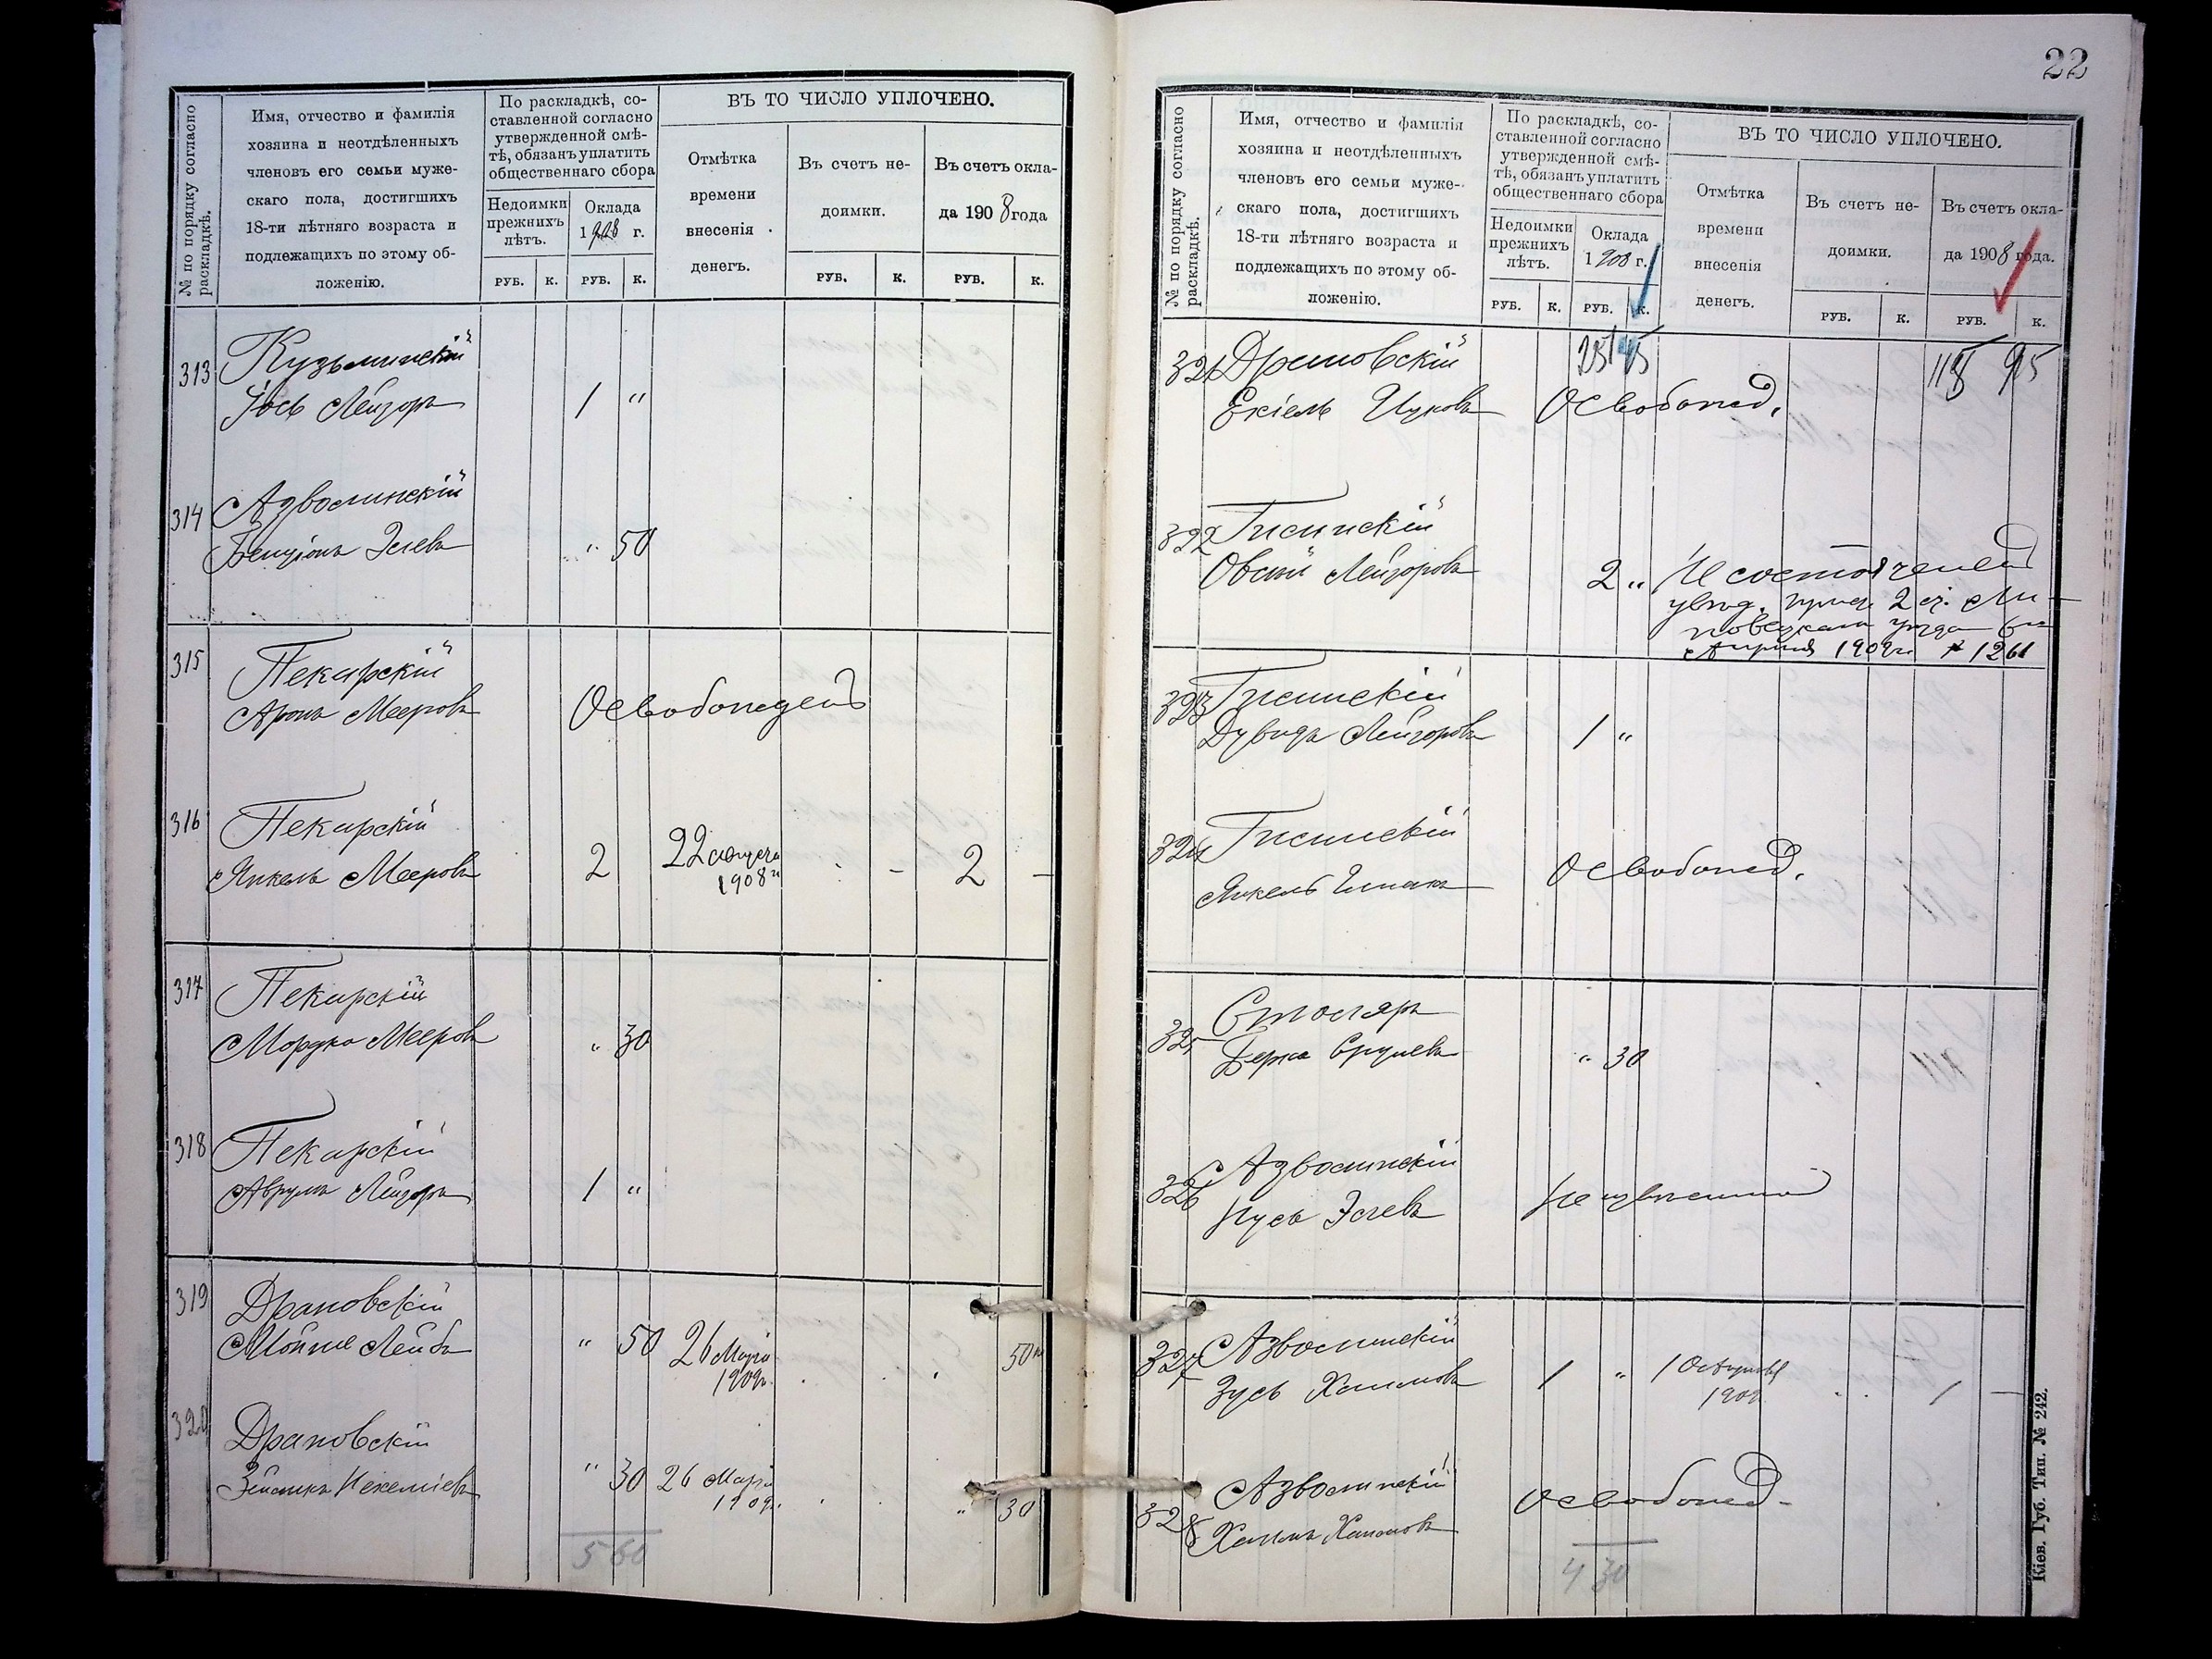 № по порядку согласно
раскладкѣ.
Имя, отчество и фамилія
хозяина и неотдѣленныхъ
членовъ его семьи муже-
скаго пола, достигшихъ
18-ти лѣтняго возраста и
подлежащихъ по этому об-
ложенію.
По раскладкѣ, со-
ставленной согласно
утвержденной смѣ-
тѣ, обязанъ уплатить
общественнаго сбора
Недоимки
прежнихъ
лѣтъ.
Оклада
1908 г.
РУБ. К. РУБ. К.
ВЪ ТО ЧИСЛО УПЛОЧЕНО.
Отмѣтка
времени
внесенія
денегъ.
Въ счетъ не-
доимки.
РУБ. К.
Въ счетъ окла-
да 1908 года
РУБ. К.
313 Кузьминскій
Іось Лейзоръ 1 "
314 Азволинскій
Бенціонъ Элевъ " 50
315 Пекарскій
Аронъ Мееровъ Освобожденъ
316 Пекарскій
Янкель Мееровъ 2 22 августа 1908 г. - 2 -
317 Пекарскій
Мордко Мееровъ " 30
318 Пекарскій
Аврумъ Лейзоръ 1 "
319 Драновскій
Мойше Лейба " 50 26 Марта 1909 г. 50
320 Драновскій
" 30 26 Марта 1909 г. " 30
5 60
22
№ по порядку согласно
раскладкѣ.
Имя, отчество и фамилія
хозяина и неотдѣленныхъ
членовъ его семьи муже-
скаго пола, достигшихъ
18-ти лѣтняго возраста и
подлежащихъ по этому об-
ложенію.
По раскладкѣ, со-
ставленной согласно
утвержденной смѣ-
тѣ, обязанъ уплатить
общественнаго сбора
Недоимки
прежнихъ
лѣтъ.
Оклада
1908 г.
РУБ. К. РУБ. К.
ВЪ ТО ЧИСЛО УПЛОЧЕНО.
Отмѣтка
времени
внесенія
денегъ.
Въ счетъ не-
доимки.
РУБ. К.
Въ счетъ окла-
да 1908 года.
РУБ. К.
321 Драновскій
Екіель Ицковъ Освобожд.
322
Овсій Лейзоровъ 2 "
Апрѣля 1909 г. № 1261
323
Дувидъ Лейзоровъ 1 "
324
Янкель Освобожд.
325 Столяръ
Берко Срулевъ " 30
326 Азволинскій
Нусь Элевъ
327 Азволинскій
Зусь Хаимовъ 1 " 1 -
328 Азволинскій
Освобожд.
4 30
Кіев. Губ. Тип. № 242.